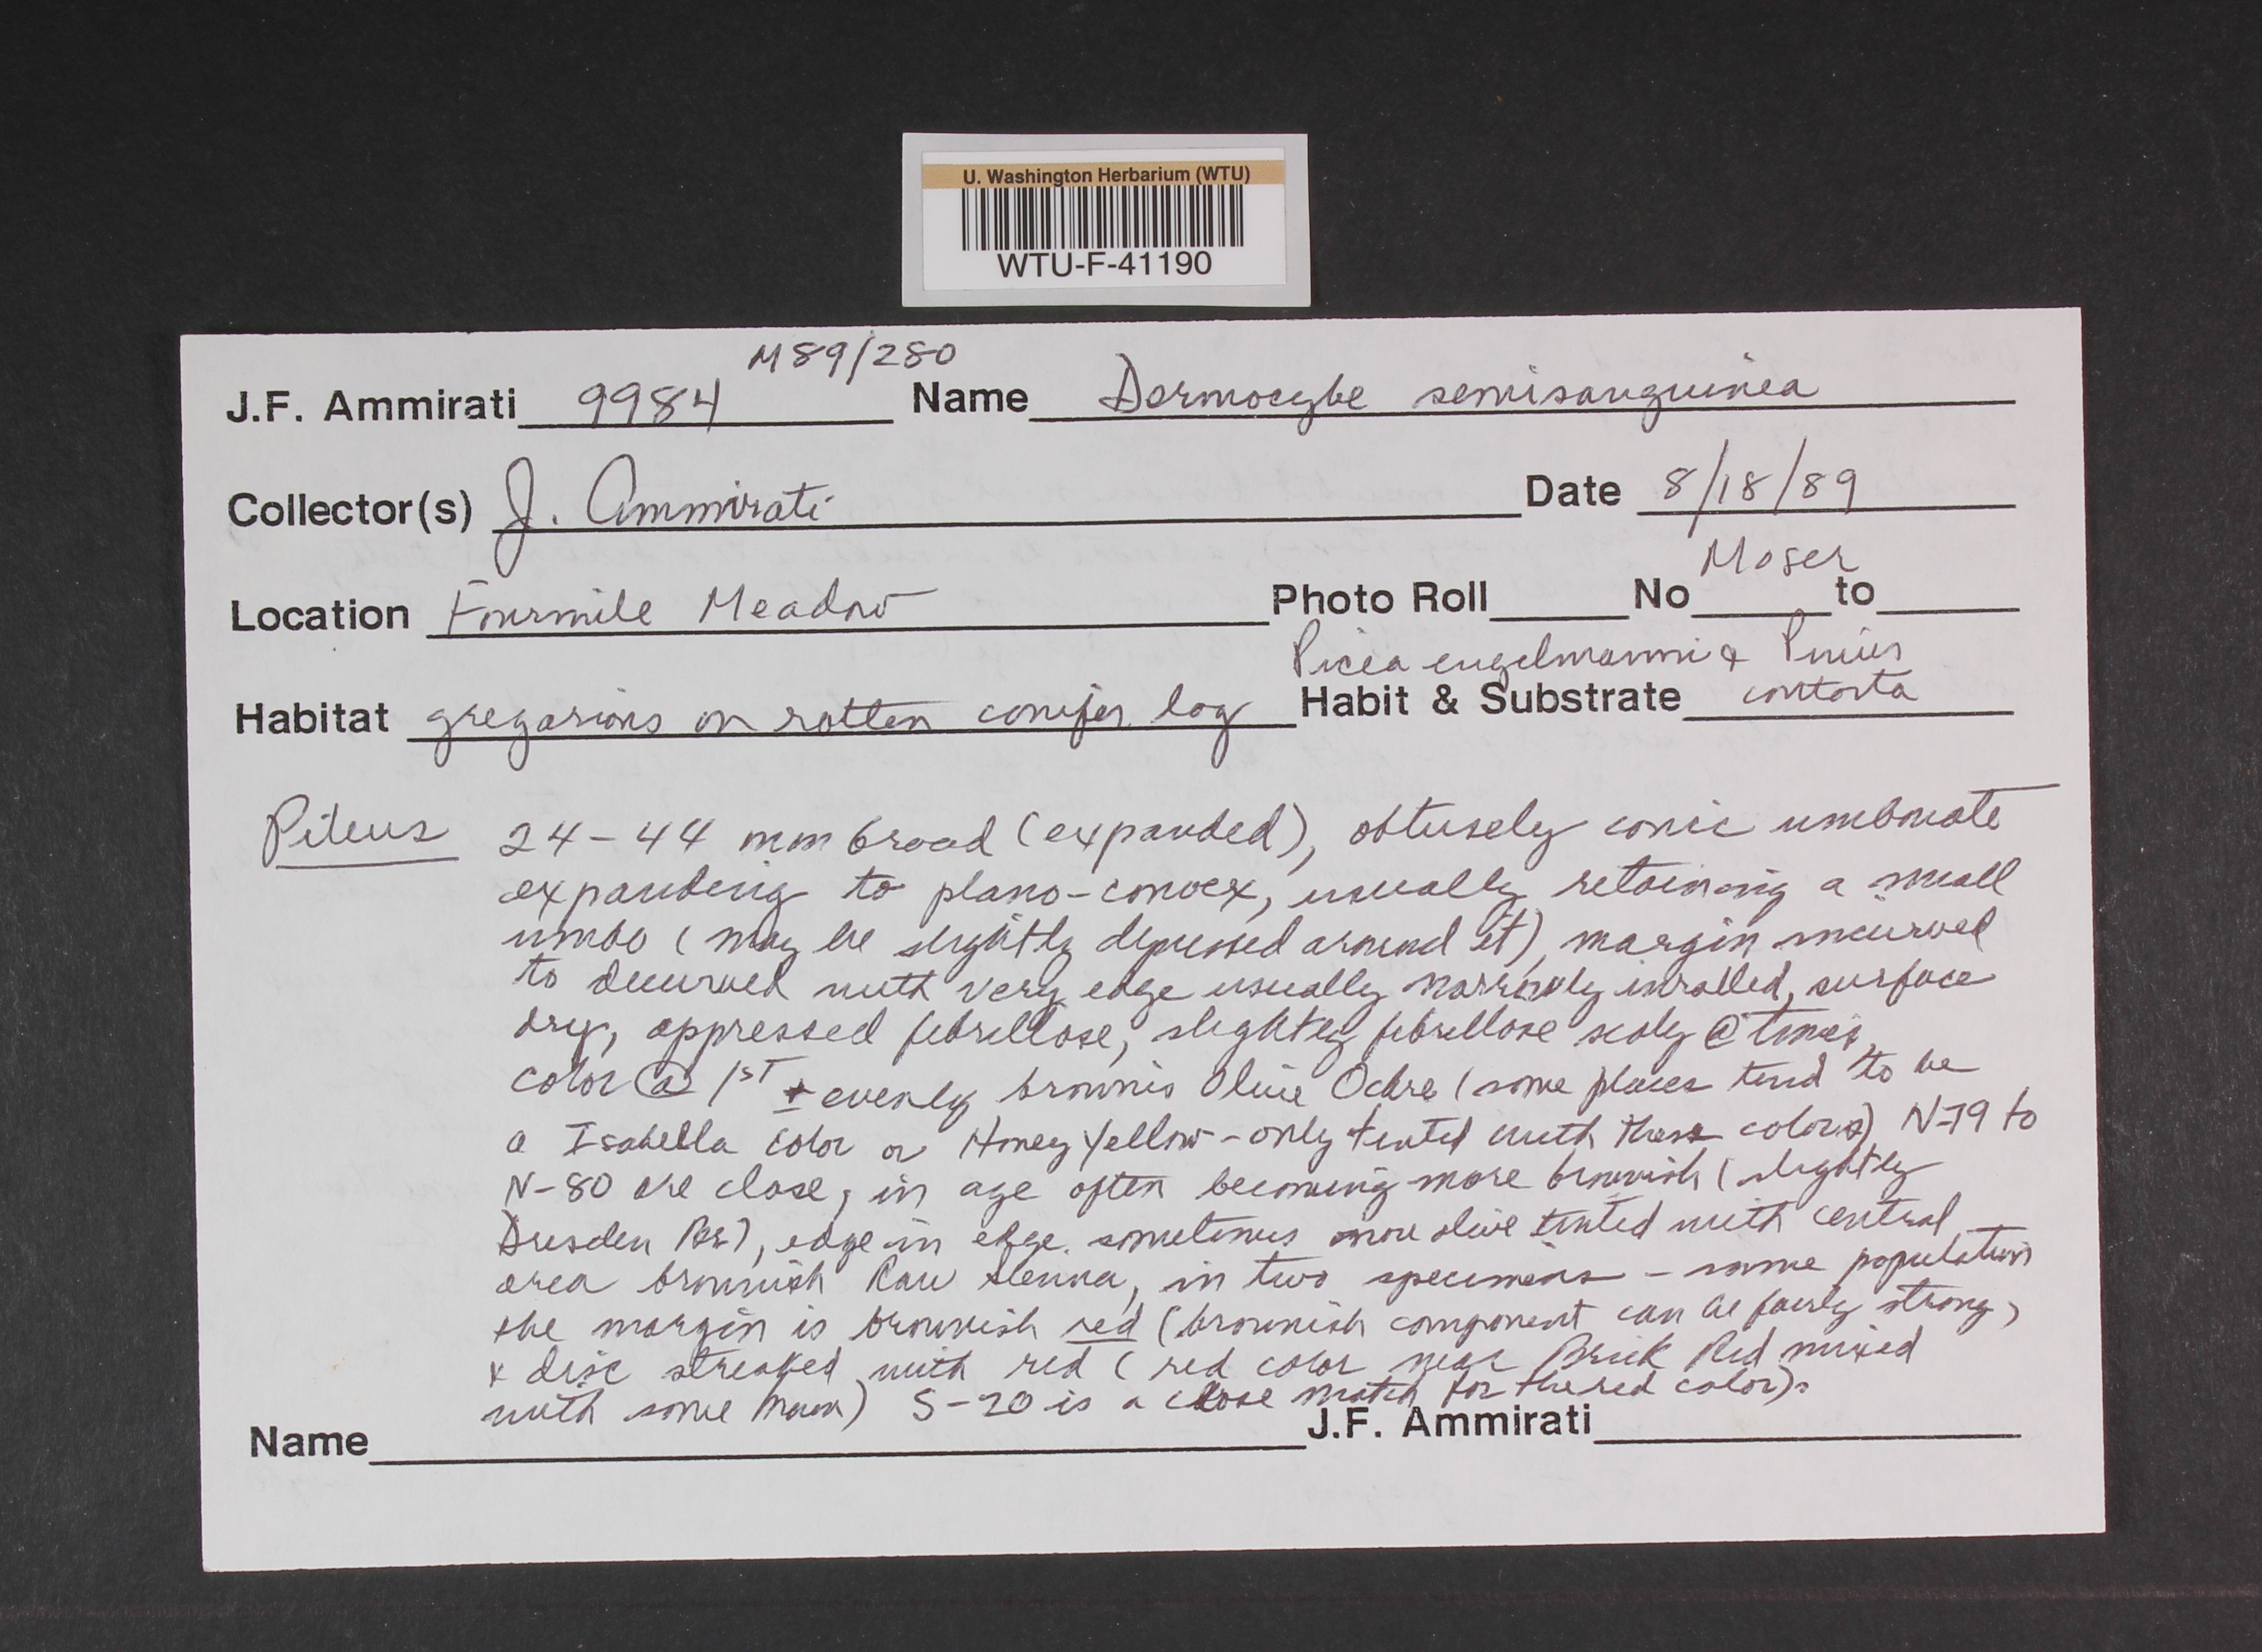 U. Washington Herbarium (WTU)
WTU-F-41190
M89/280
J.F. Ammirati 9984 Name Dermocybe semisanguinea
Collector(s) J. Ammirati Date 8/18/89
Moser
Location Fourmile Meadow Photo Roll No to
Picea engelmanni & Pinus
Habitat gregarious on rotten conifer log Habit & Substrate contorta
Pileus 24-44 mm broad (expanded), obtusely conic umbonate
expanding to plano-convex, usually retaining a small
umbo (may be slightly depressed around it), margin incurved
to decurved with very edge usually narrowly inrolled, surface
dry, appressed fibrillose, slightly fibrillose scaly @ times,
color @ 1ST ± evenly brownis Olive Ochre (some places tend to be
a Isabella color or Honey Yellow - only tinted with these colors) N-79 to
N-80 are close, in age often becoming more brownish (slightly
Dresden Br), edge in edge sometimes more olive tinted with central
area brownish Raw Sienna, in two specimens - same population
the margin is brownish red (brownish component can be fairly strong,
& disc streaked with red (red color near Brick Red mixed
with some) S-20 is a close match for the red color).
Name J.F. Ammirati